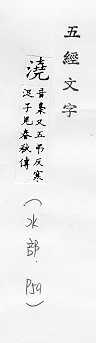 五經文字
澆
音梟又五弔反寒
浞子見春秋傳
(水部 P59)